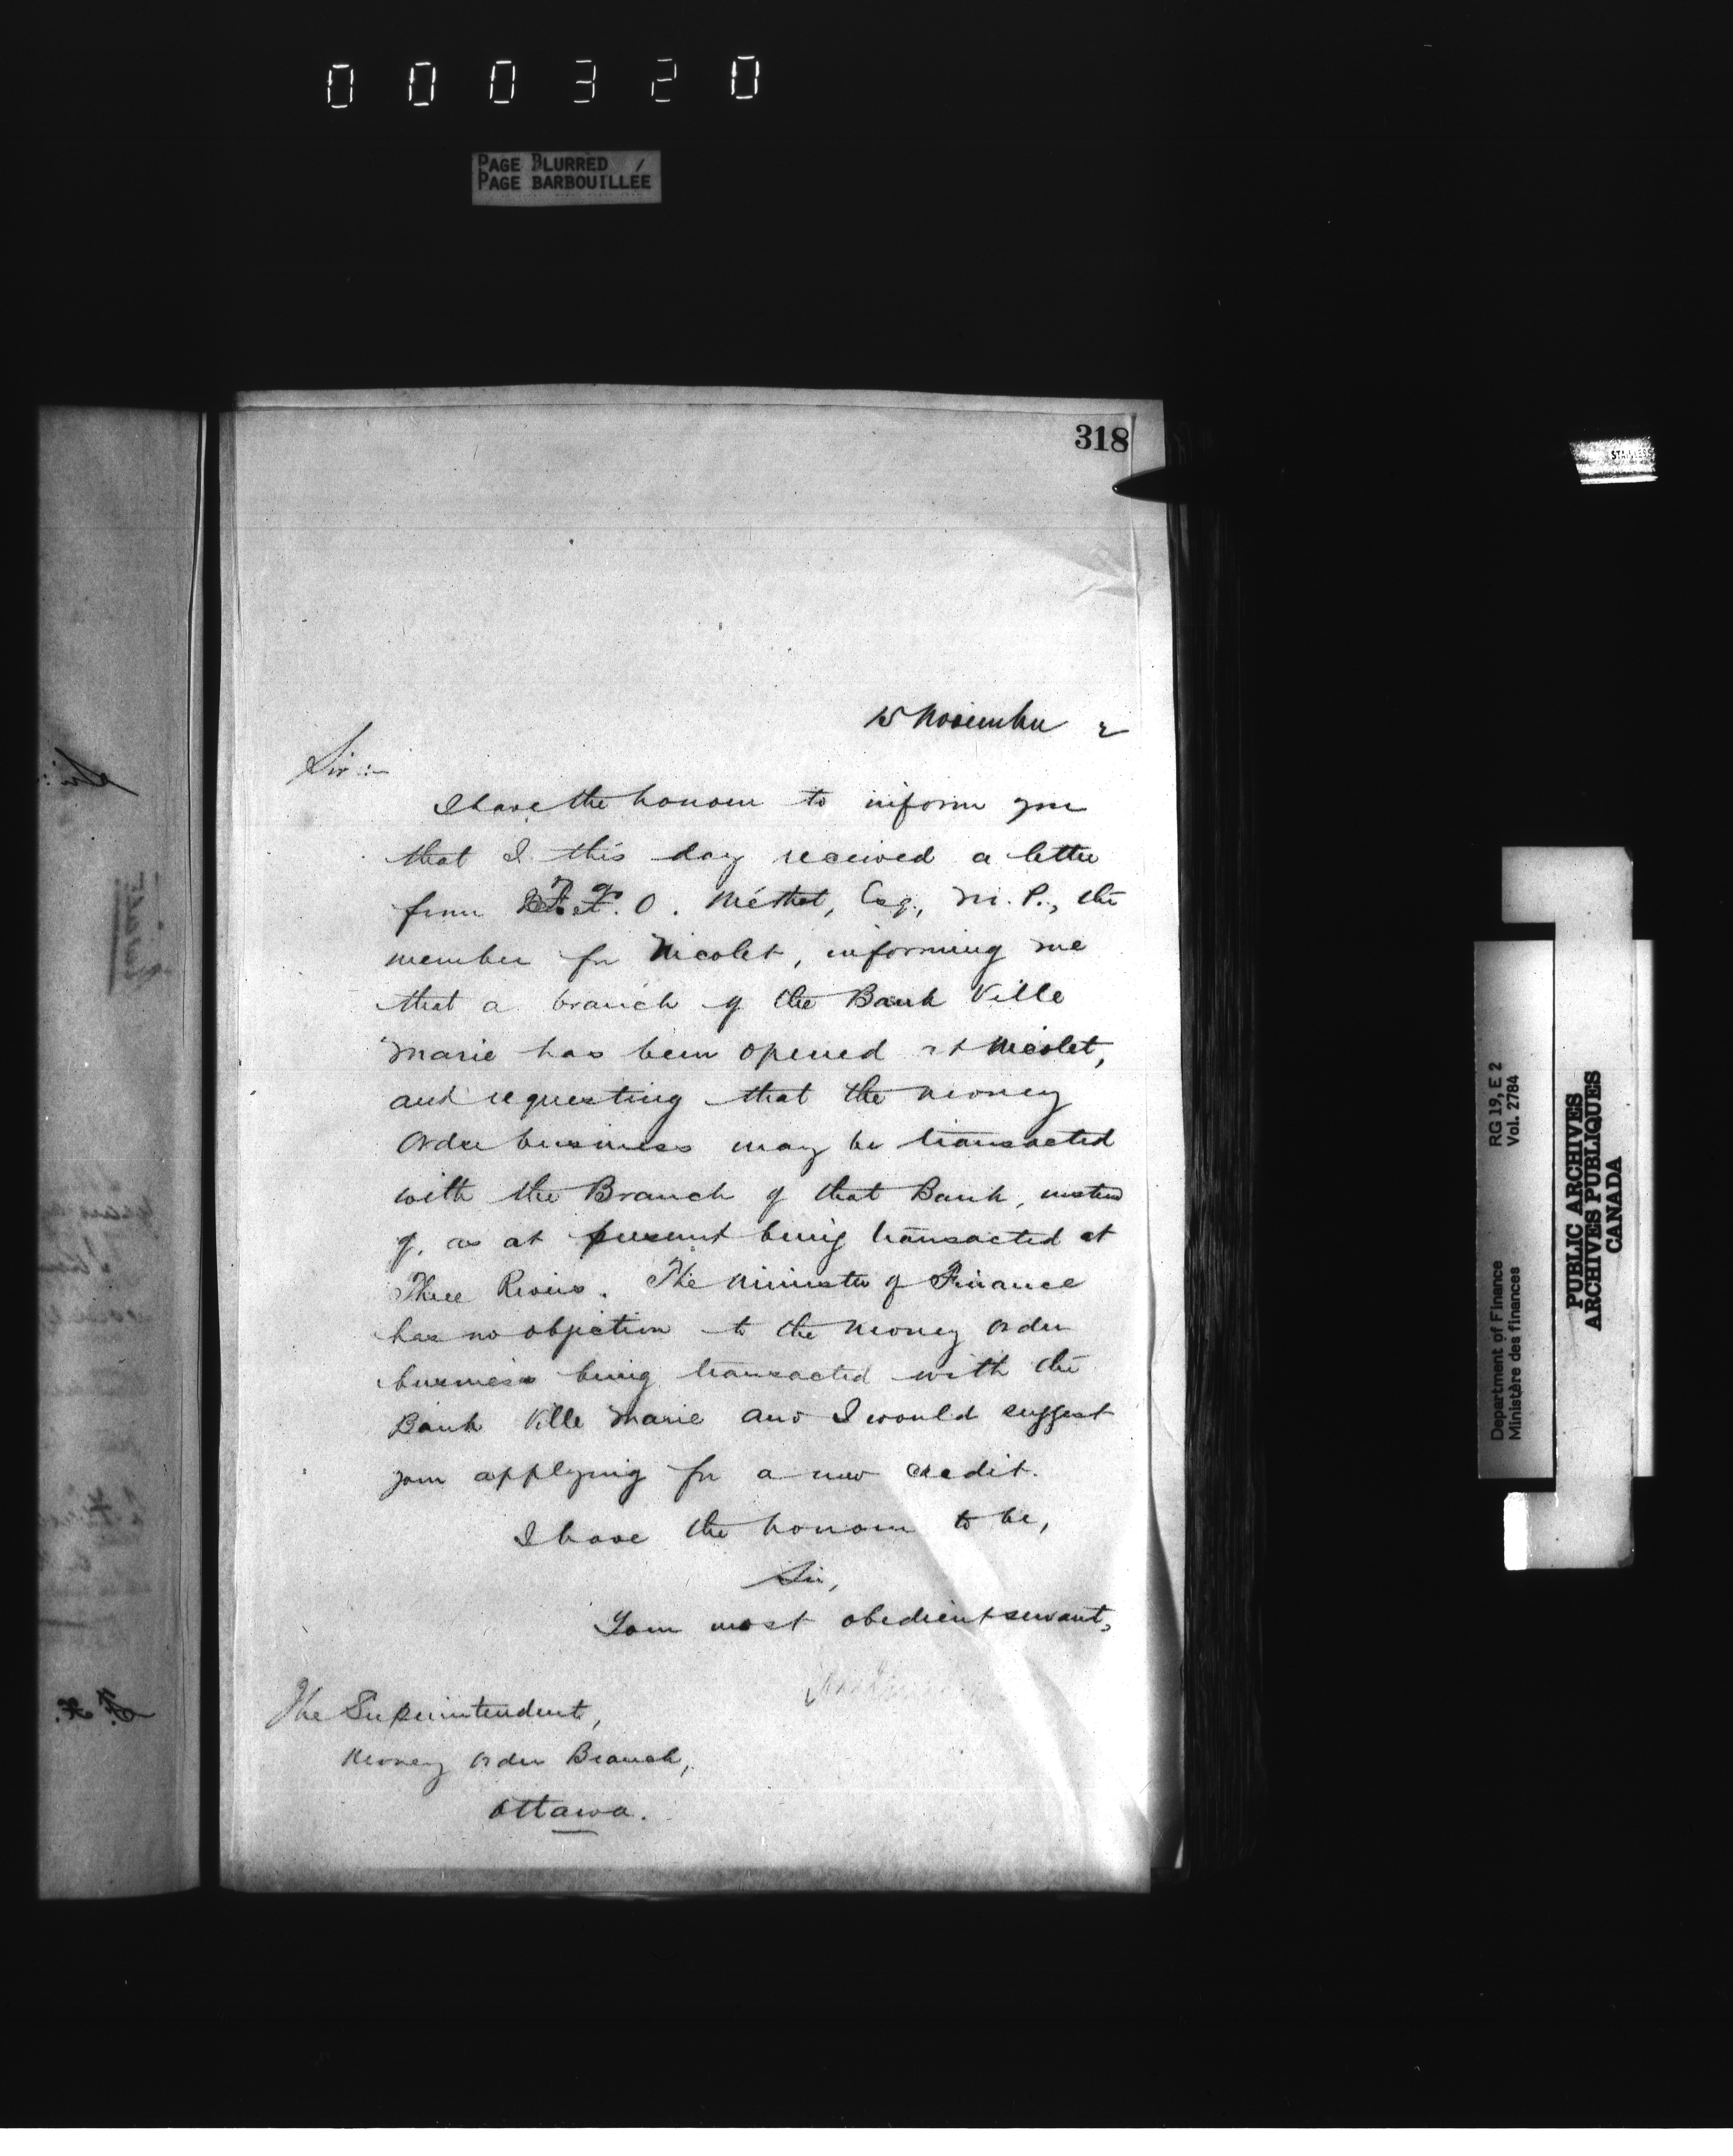 000320
PAGE BLURRED
PAGE BARBOUILLÉE
318
15 November 2
Sir:-
I have the honour to inform you
that I this day received a letter
from F. X. O. Méthot, Esq., M. P., the
member for Nicolet, informing me
that a branch of the Bank Ville
Marie has been opened at Nicolet,
and requesting that the Money
Order business may be transacted
with the Branch of that Bank, instead
of, as at present being transacted at
Three Rivers. The Minister of Finance
has no objection to the Money Order
business being transacted with the
Bank Ville Marie and I would suggest
your applying for a new credit.
I have the honour to be,
Sir,
Your most obedient servant,
The Superintendent,
Money Order Branch,
Ottawa.
STAINLESS
Department of Finance RG 19, E 2
Ministère des finances Vol. 2784
PUBLIC ARCHIVES
ARCHIVES PUBLIQUES
CANADA